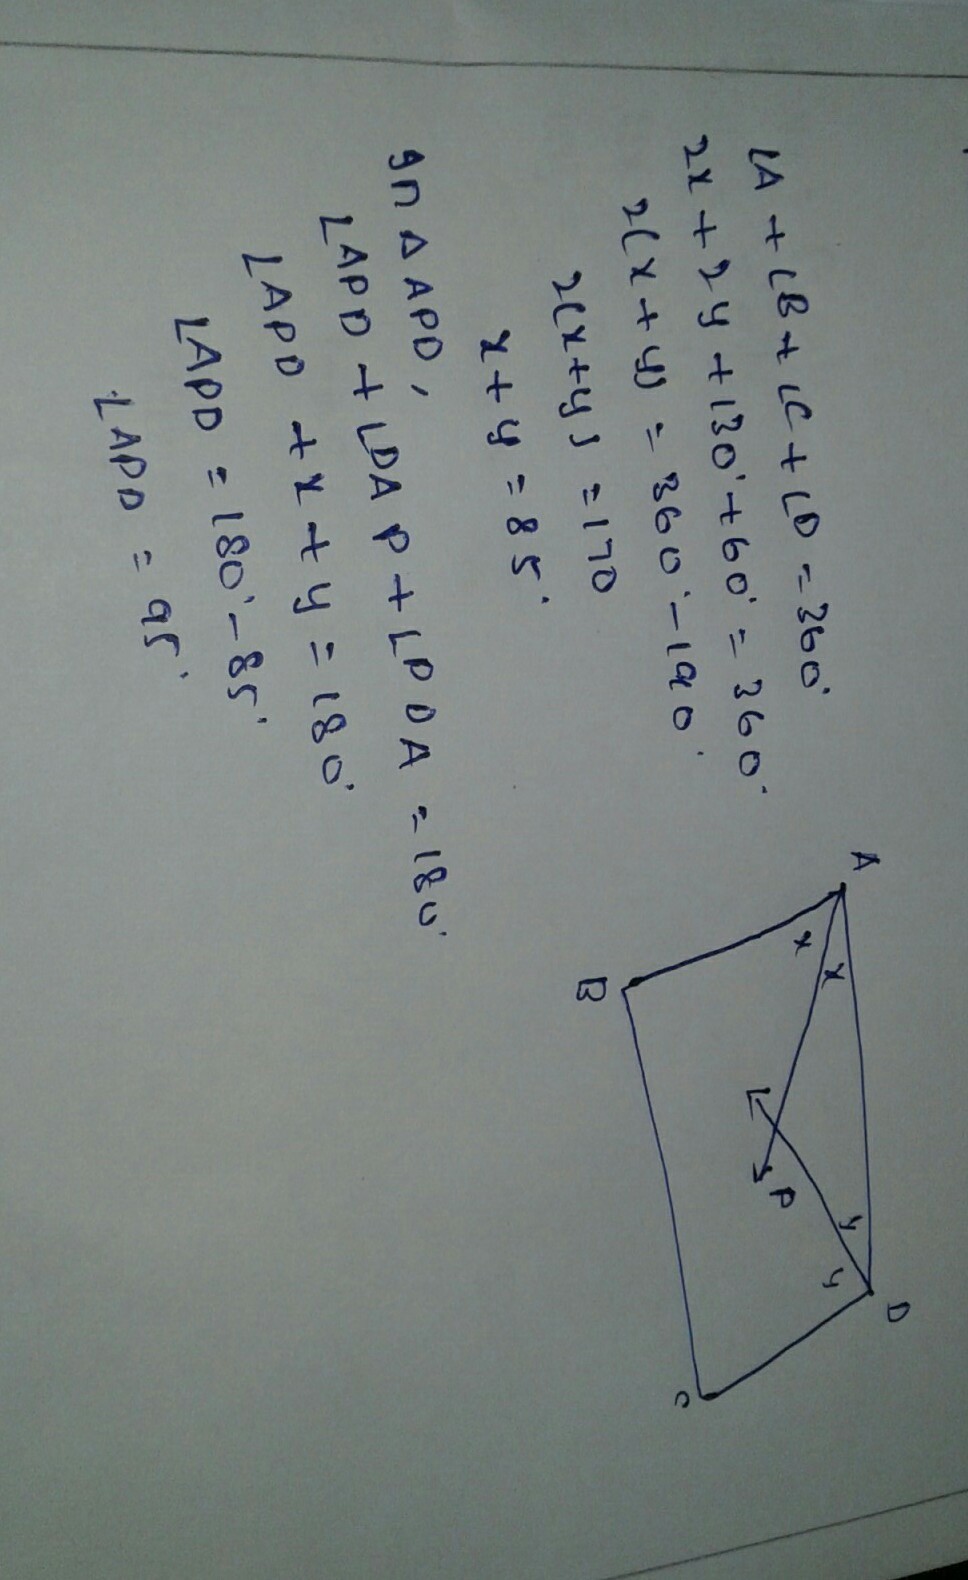 ∠A + ∠B + ∠C + ∠D = 360°
2x + 2y + 130° + 60° = 360°
2(x + y) = 360° - 190°
2(x + y) = 170
x + y = 85°
In Δ APD,
∠APD + ∠DAP + ∠PDA = 180°
∠APD + x + y = 180°
∠APD = 180° - 85°
∠APD = 95°
A
x
x
B
P
y
y
D
C